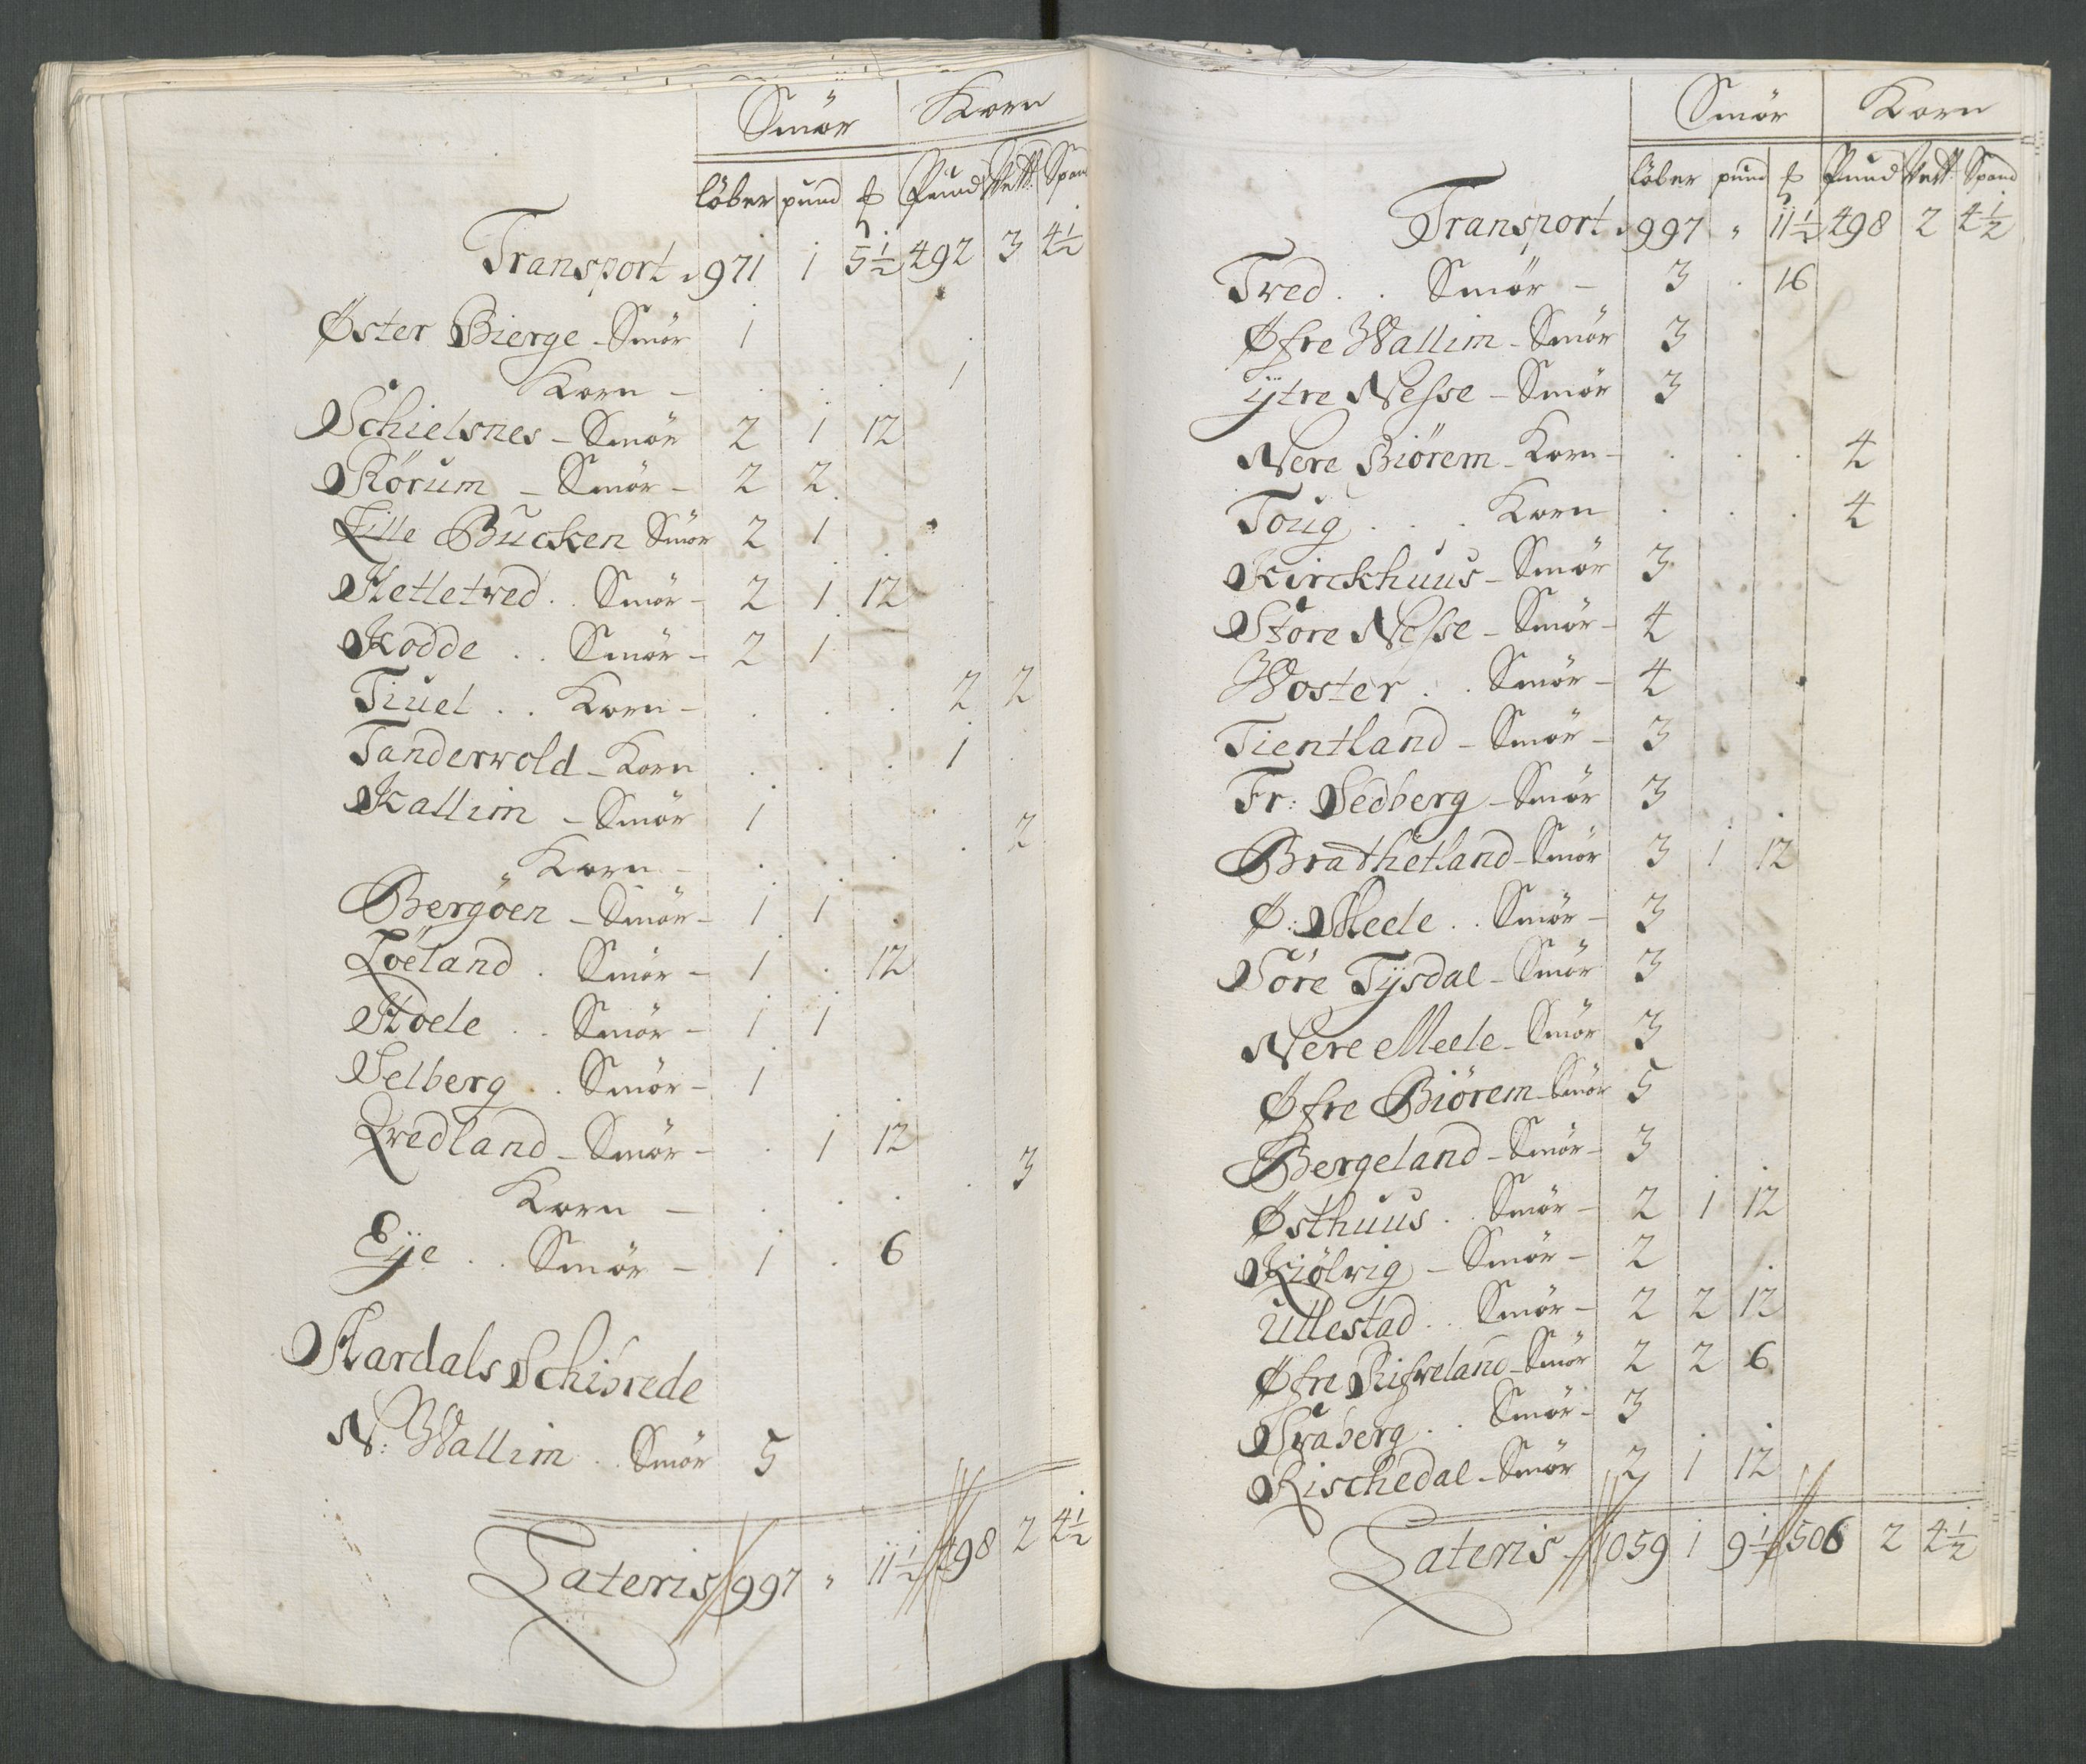 Smör Korn
löber pund ℔ Pund Vett: Span
Transport 971 1 5½ 492 3 4½
Øster Bierge - Smör 1
Korn - . . . 1
Schielsnes - Smör 2 1 12
Rörum - Smör - 2 2
Lille Bucken Smör 2 1
Hetletved . . Smör - 2 1 12
Kodde . . Smör - 2 1
Tiuel . . Korn - . . . 2 2
Tanderwold - Korn . . . 1 .
Kallim - Smör 1
" Korn - . . . . 2
Bergöen - Smör - 1 1
Löeland . Smör - 1 . 12
Hoele . . Smör - 1 1
Selberg . . Smör - 1
Qvedland - Smör - . 1 12
Korn - . . . . 3
Eye . . Smör - 1 . 6
Aardals Schibrede
N: Wallim . . Smör 5
Lateris 997 " 11½ 498 2 4½
Smör Korn
löber pund ℔ Pund Vett. Spand
Transport 997 " 11½ 498 2 4½
Tved . . Smör - 3 . 16
Øfre Wallim - Smör 3
ÿtre Nesse - Smör 3
Nere Biörem - Korn - . . . 4
Toug . . . Korn . . . 4
Kirckhuus - Smör 3
Store Nesse - Smör - 4
Woster . . Smör - 4
Tientland - Smör - 3
Fr: Sedberg - Smör 3
Brathetland - Smör 3 1 12
Ø: Meele . . Smör - 3
Söre Tÿsdal - Smör 3
Nere Meele - Smör 3
Øfre Biörem - Smör 5
Bergeland - Smör - 3
Østhuus . . Smör - 2 1 12
Kiölvig - Smör - 2
Ullestad . . Smör - 2 2 12
Øfre Rifveland - Smör 2 2 6
Svaberg . . Smör - 3
Rischedal - Smör 2 1 12
Lateris - 1059 1 9½ 506 2 4½